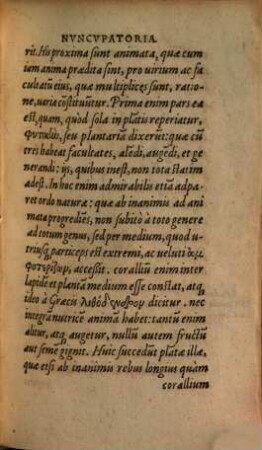 NVNCVPATORIA.
rit. His proxima sunt animata, quæ cum
iam anima prædita sint, pro virium ac fa
cultatũ eius, quæ multiplices sunt, ratio
ne, varia cõstituũtur. Prima enim pars ea
est, quam, quòd sola in plãtis reperiatur,
seu plantariã dixerũt: quæ cũ
tres habeat facultates, alẽdi, augẽdi, et ge
nerandi: ijs, quibus inest, non tota statim
adest. In hoc enim admirabilis etiã adpa
ret ordo naturæ: quæ ab inanimis ad ani
mata progrediẽs, non subitò à toto genere
ad totum genus, sed per medium, quod u
triusq; particeps est extremi, ac veluti
accessit. corallium enim inter
lapidẽ et plantã medium esse constat, atq;
ideo à Græcis λιθόδενδρον dicitur. nec
integrã nutricẽ animã habet: tantũ enim
alitur, atq; augetur, nullũ autem fructũ
aut semẽ gignit. Huic succedũt plãtæ illæ,
quæ etsi ab inanimis rebus longius quàm
corallium